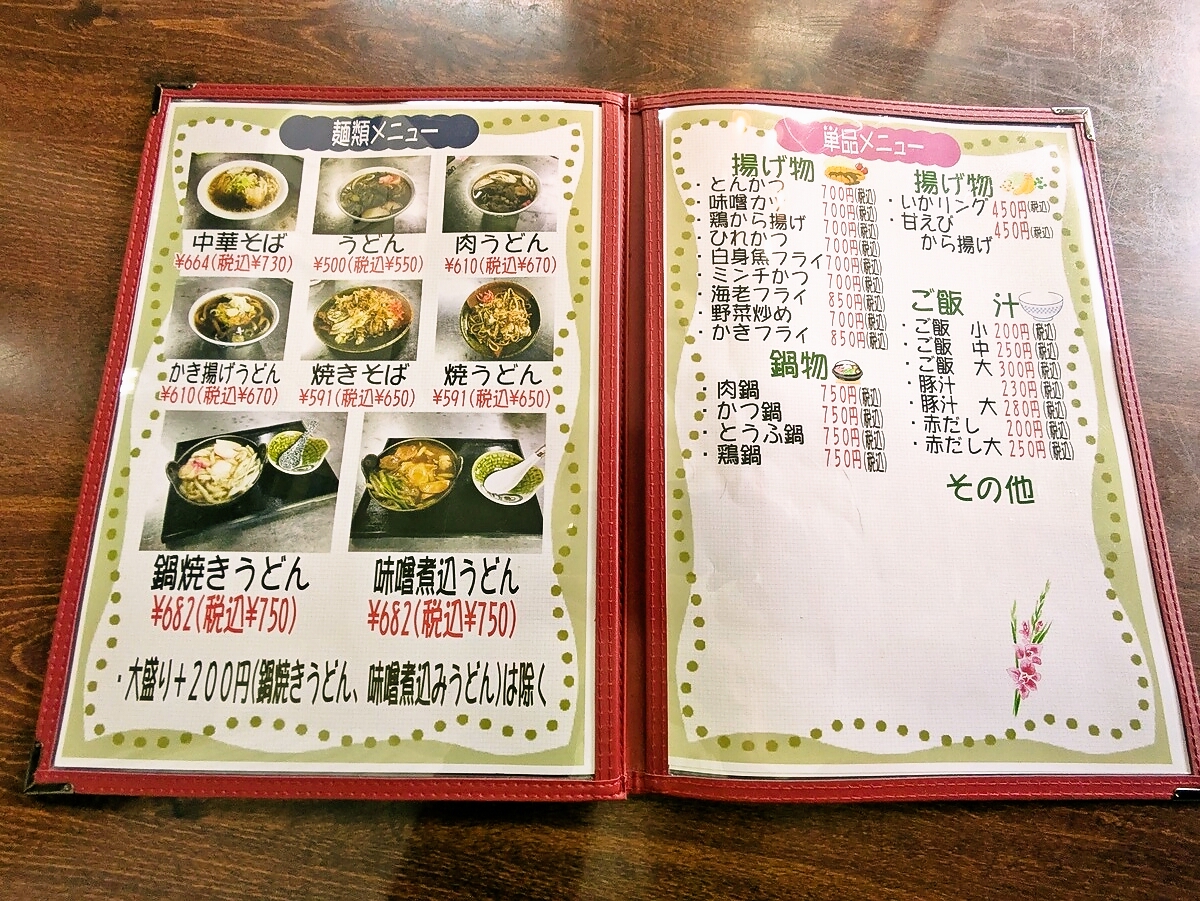 麺類メニュー
中華そば うどん 肉うどん
¥664(税込¥730) ¥500(税込¥550) ¥610(税込¥670)
かき揚げうどん 焼きそば 焼うどん
¥610(税込¥670) ¥591(税込¥650) ¥591(税込¥650)
鍋焼きうどん 味噌煮込うどん
¥682(税込¥750) ¥682(税込¥750)
・大盛り+200円(鍋焼きうどん、味噌煮込みうどん)は除く
単品メニュー
揚げ物
・とんかつ 700円(税込)
・味噌カツ 700円(税込)
・鶏から揚げ 700円(税込)
・ひれかつ 700円(税込)
・白身魚フライ 700円(税込)
・ミンチかつ 700円(税込)
・海老フライ 850円(税込)
・野菜炒め 700円(税込)
・かきフライ 850円(税込)
鍋物
・肉鍋 750円(税込)
・かつ鍋 750円(税込)
・とうふ鍋 750円(税込)
・鶏鍋 750円(税込)
揚げ物
・いかリング 450円(税込)
・甘えび 450円(税込)
から揚げ
ご飯 汁
・ご飯 小 200円(税込)
・ご飯 中 250円(税込)
・ご飯 大 300円(税込)
・豚汁 230円(税込)
・豚汁 大 280円(税込)
・赤だし 200円(税込)
・赤だし大 250円(税込)
その他